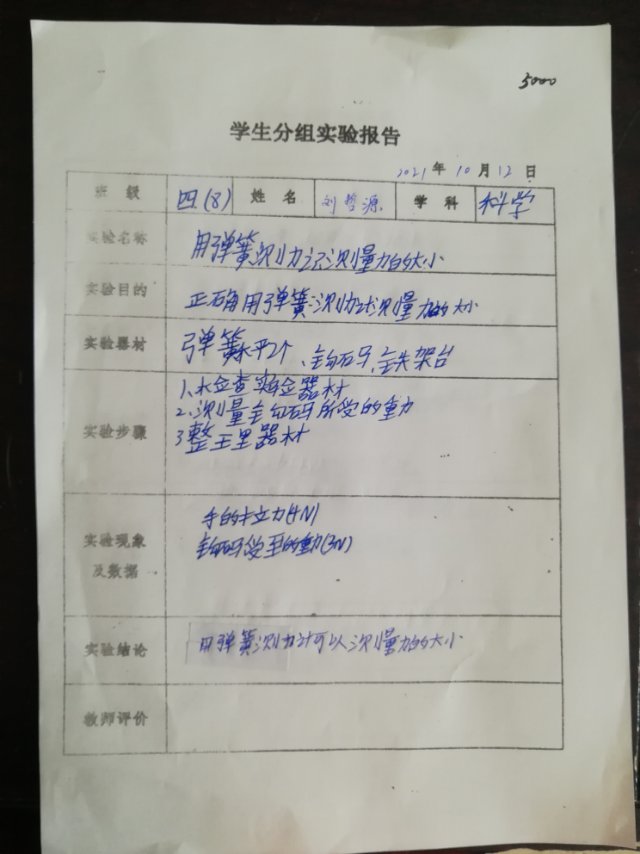 5000
学生分组实验报告
2021年10月12日
班级 四(8) 姓名 刘哲源 学科 科学
实验名称 用弹簧测力计测量力的大小
实验目的 正确用弹簧测力计测量力的大小
实验器材 弹簧水平2个、钩码、铁架台
实验步骤 1.检查实验器材
2.测量钩码所受的重力
3整理器材
实验现象及数据 手的拉力(4N)
钩码受到的重力(3N)
实验结论 用弹簧测力计可以测量力的大小
教师评价